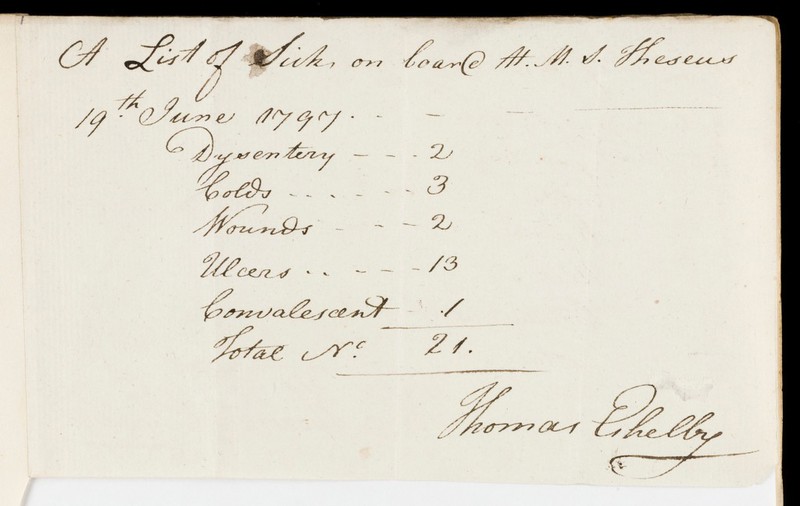 A List of Sick, on board H. M. S. Theseus
19.th June 1797 . . - -
Dysentery - - - 2
Colds - - - - - - 3
Wounds - - - - 2
Ulcers - - - - - 13
Convalescent - 1
Total No. 21.
Thomas Eshelby